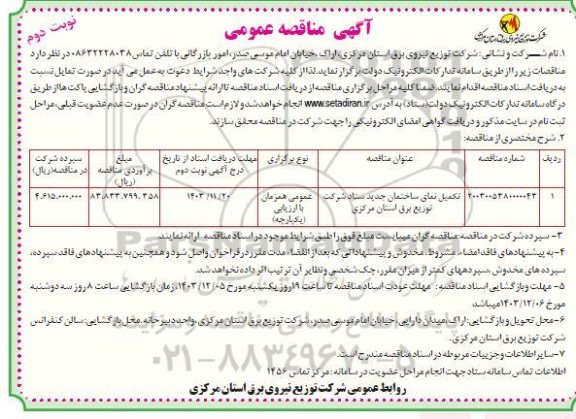 آگهی مناقصه عمومی
نوبت دوم
شرکت توزیع نیروی برق استان مرکزی
۱. نام شرکت و نشانی: شرکت توزیع نیروی برق استان مرکزی، اراک، خیابان امام موسی صدر، امور بازرگانی با تلفن تماس ۰۸۶۳۲۲۲۸۰۳۸ در نظر دارد
مناقصات زیر را از طریق سامانه تدارکات الکترونیک دولت برگزار نماید. لذا از کلیه شرکت های واجد شرایط دعوت به عمل می آید در صورت تمایل نسبت
به دریافت اسناد مناقصه اقدام نمایند. ضمنا کلیه مراحل برگزاری مناقصه از دریافت اسناد مناقصه تا ارائه پیشنهاد مناقصه گران و بازگشایی پاکت ها از طریق
درگاه سامانه تدارکات الکترونیک دولت (ستاد) به آدرس www.setadiran.ir انجام خواهد شد و لازم است مناقصه گران در صورت عدم عضویت قبلی، مراحل
ثبت نام در سایت مذکور و دریافت گواهی امضای الکترونیکی را جهت شرکت در مناقصه محقق سازند.
۲. شرح مختصری از مناقصه:
ردیف شماره مناقصه عنوان مناقصه نوع برگزاری مهلت دریافت اسناد از تاریخ درج آگهی نوبت دوم مبلغ برآوردی مناقصه (ریال) سپرده شرکت در مناقصه (ریال)
۱ ۲۰۰۳۰۰۵۳۸۰۰۰۰۰۴۳ تکمیل نمای ساختمان جدید ستاد شرکت توزیع برق استان مرکزی عمومی همزمان با ارزیابی (یکپارچه) ۱۴۰۳/۱۱/۲۰ ۸۳.۸۳۳.۷۹۹.۳۵۸ ۴.۶۱۵.۰۰۰.۰۰۰
۳- سپرده شرکت در مناقصه: مناقصه گران میبایست مبلغ فوق را طبق شرایط موجود در اسناد مناقصه ارائه نمایند.
۴- به پیشنهادهای فاقد امضاء، مشروط، مخدوش و پیشنهاداتی که بعد از انقضاء مدت مقرر در فراخوان واصل شود و همچنین به پیشنهادهای فاقد سپرده،
سپرده های مخدوش، سپردههای کمتر از میزان مقرر، چک شخصی و نظایر آن ترتیب اثر داده نخواهد شد.
۵- مهلت و بازگشایی اسناد مناقصه: مهلت عودت اسناد مناقصه تا ساعت ۱۹ روز یکشنبه مورخ ۱۴۰۳/۱۲/۰۵، زمان بازگشایی ساعت ۸ روز سه دوشنبه
مورخ ۱۴۰۳/۱۲/۰۶ میباشد
۶- محل تحویل و بازگشایی: اراک، میدان دارایی، خیابان امام موسی صدر، شرکت توزیع برق استان مرکزی، واحد دبیرخانه. محل بازگشایی: سالن کنفرانس
شرکت توزیع برق استان مرکزی.
۷- سایر اطلاعات و جزییات مربوطه در اسناد مناقصه مندرج است.
اطلاعات تماس سامانه ستاد جهت انجام مراحل عضویت در سامانه: مرکز تماس ۱۴۵۶
روابط عمومی شرکت توزیع نیروی برق استان مرکزی
۰۲۱-۸۸۳۴۹۶۷۰-۵